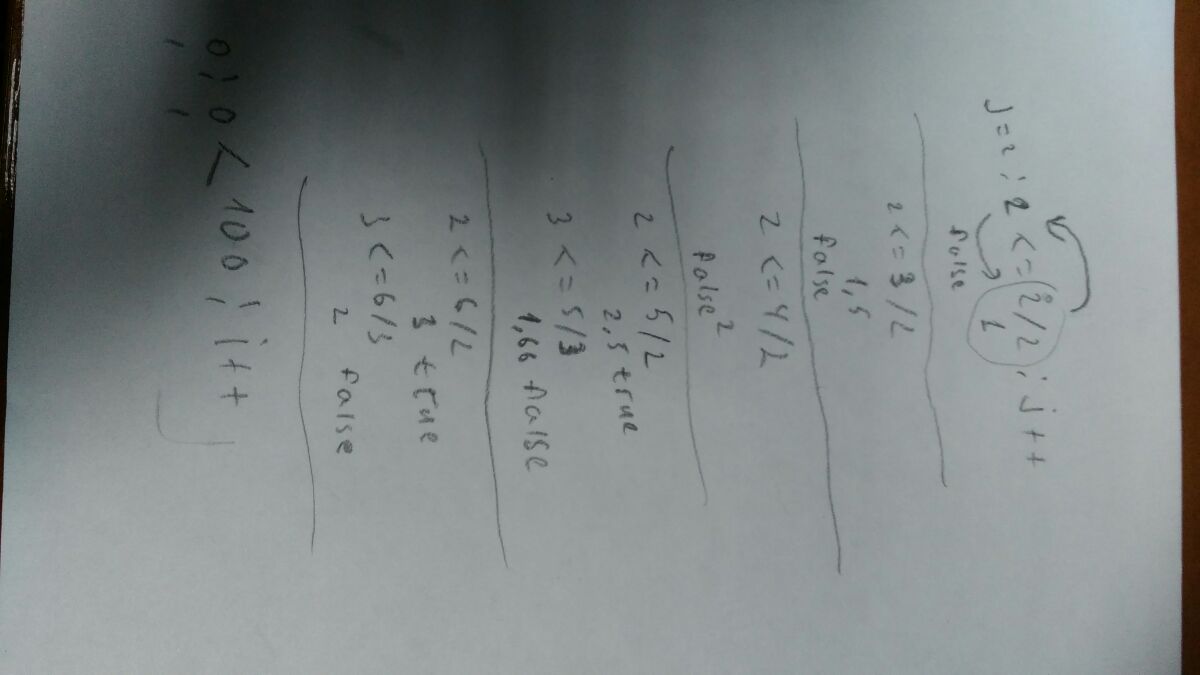 j=2; 2 <= (2/2; j++
1
false
2 <= 3/2
1,5
false
2 <= 4/2
2
false
2 <= 5/2
2,5 true
3 <= 5/3
1,66 false
2 <= 6/2
3 true
3 <= 6/3
2 false
0; 0 < 100; i++